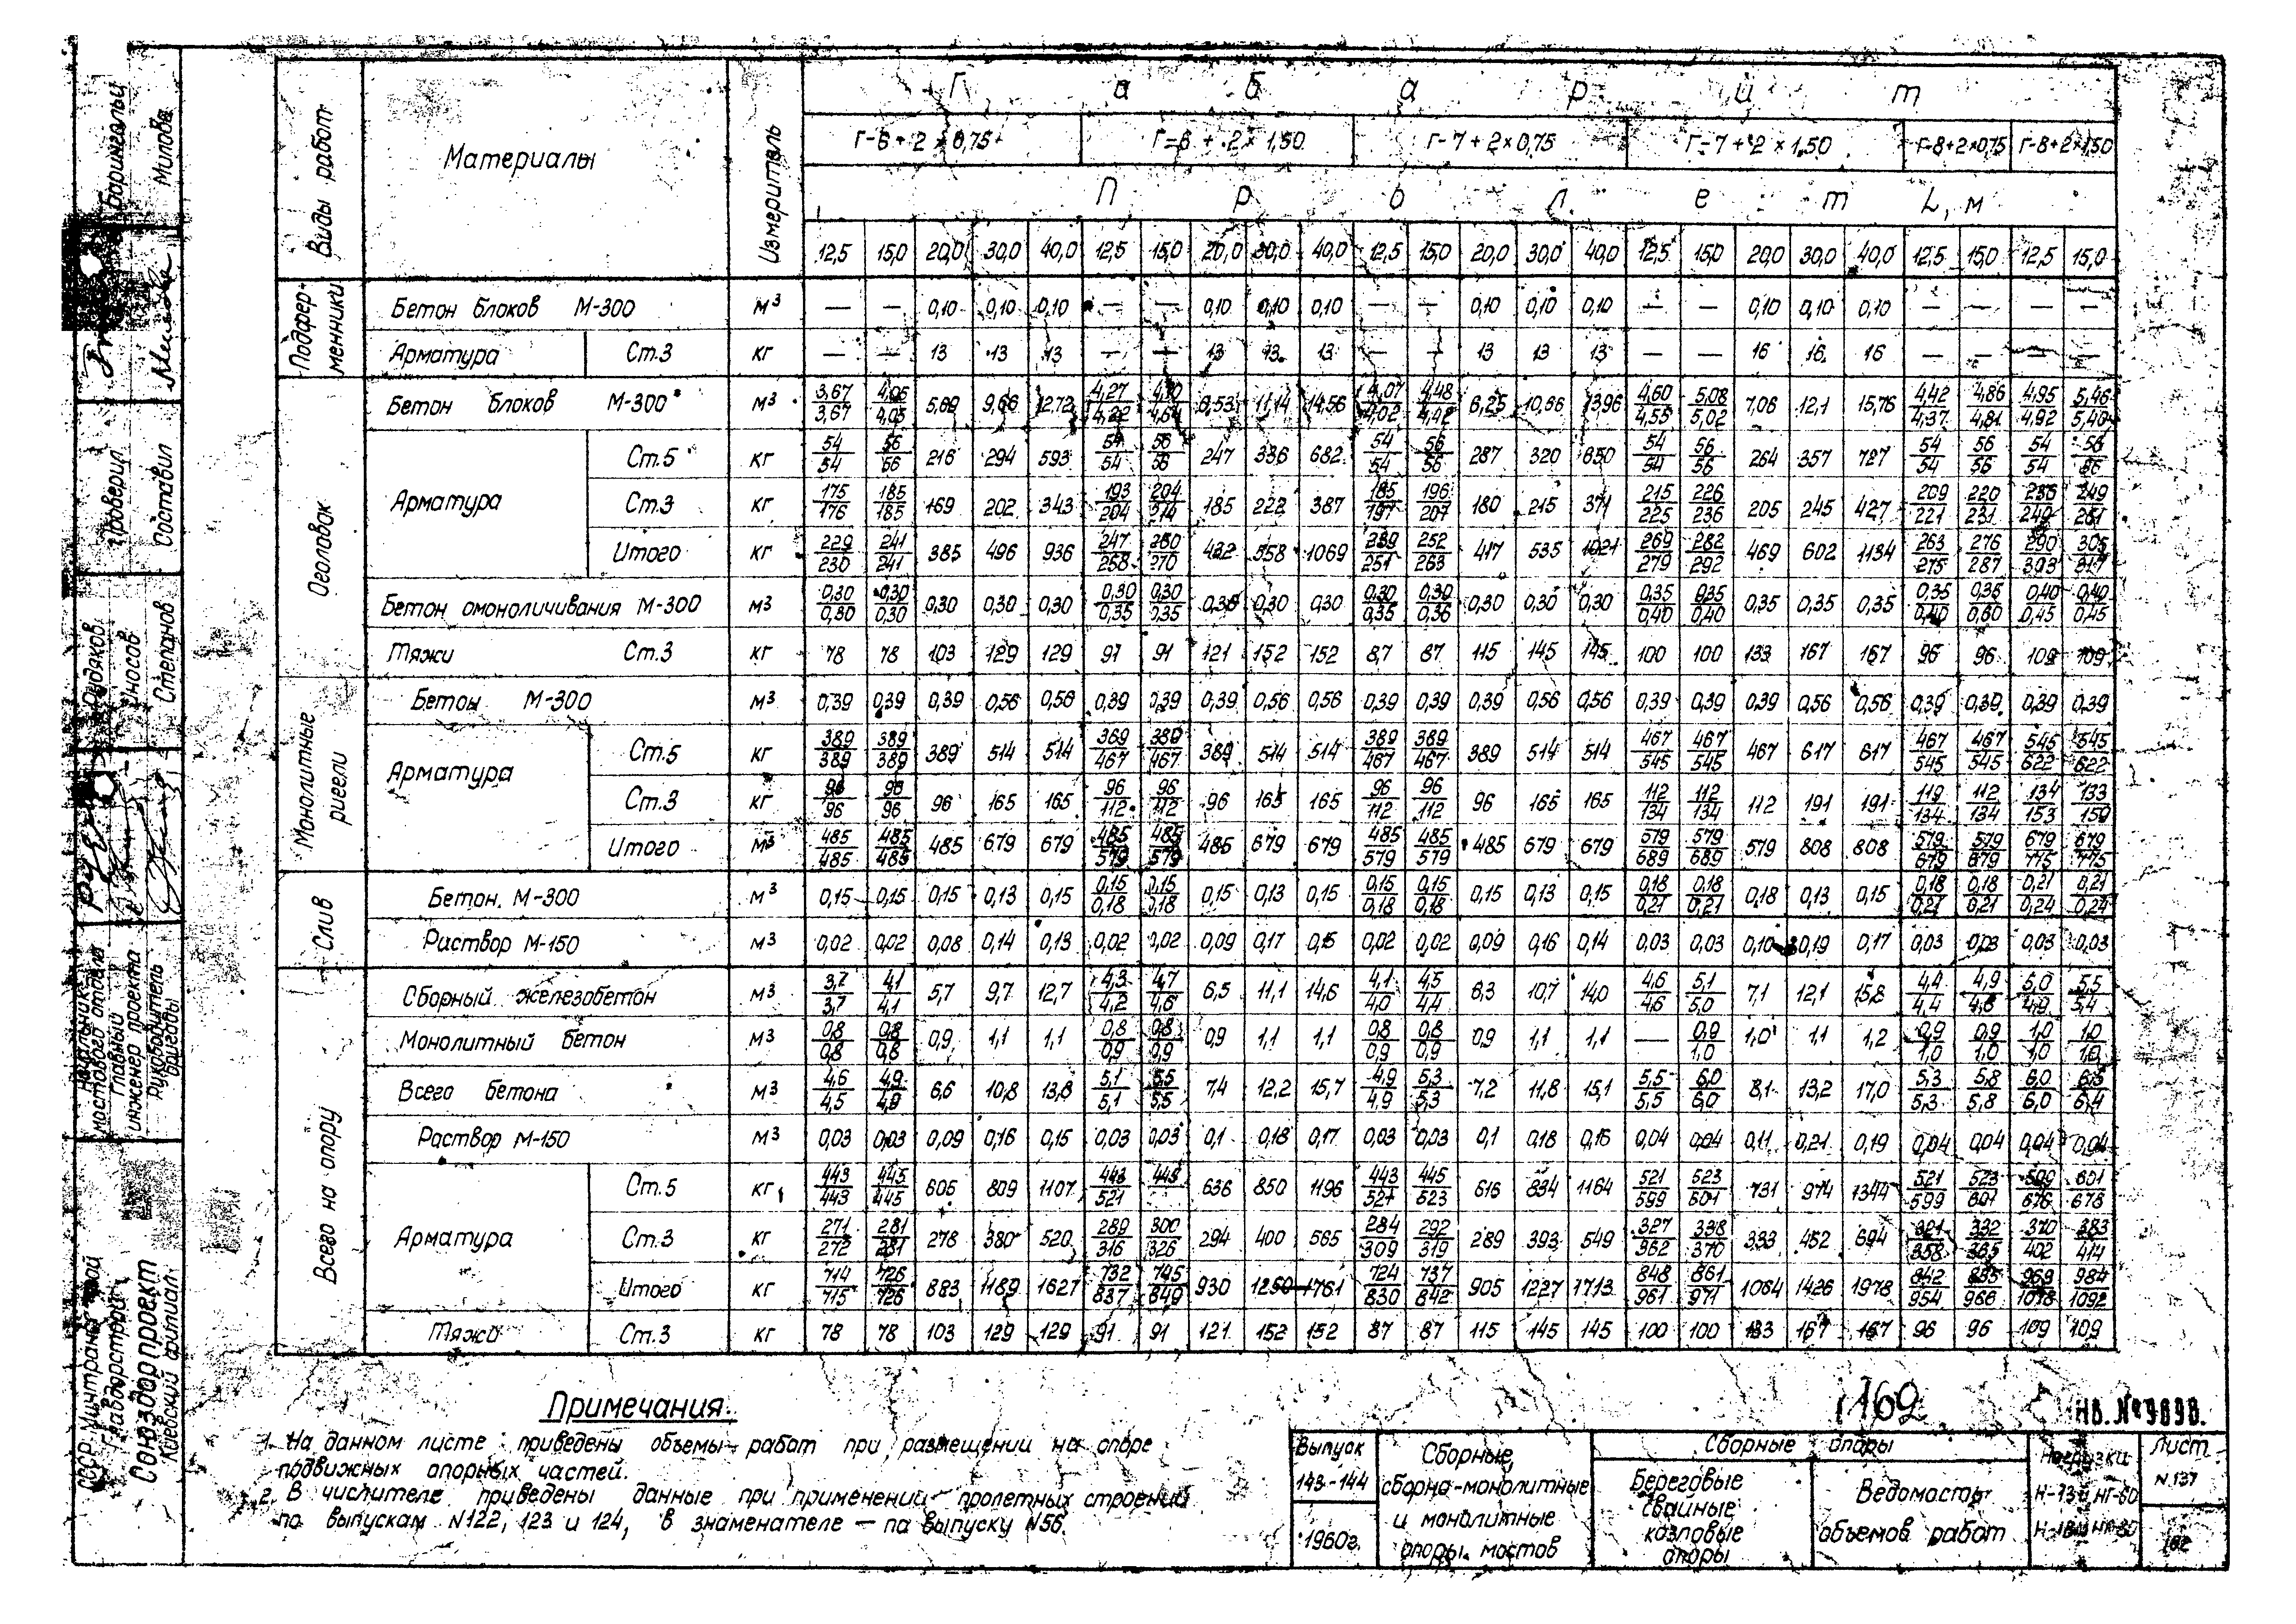 Габарит
Виды работ Материалы Измеритель Г-6+2×0,75 Г=6+2×1,50 Г-7+2×0,75 Г-7+2×1,50 Г-8+2×0,75 Г-8+2×1,50
Пролет L, м
12,5 15,0 20,0 30,0 40,0 12,5 15,0 20,0 30,0 40,0 12,5 15,0 20,0 30,0 40,0 12,5 15,0 20,0 30,0 40,0 12,5 15,0 12,5 15,0
Подферменники
Бетон блоков М-300 м³ — — 0,10 0,10 0,10 — — 0,10 0,10 0,10 — — 0,10 0,10 0,10 — — 0,10 0,10 0,10 — — — —
Арматура Ст.3 кг — — 13 13 13 — — 13 13 13 — — 13 13 13 — — 16 16 16 — — — —
Оголовок
Бетон блоков М-300 м³ 3,67/3,67 4,05/4,05 5,69 9,66 12,72 4,27/4,22 4,64 6,53 11,14 14,56 4,07/4,02 4,48/4,42 6,25 10,66 13,96 4,60/4,55 5,08/5,02 7,06 12,1 15,76 4,42/4,37 4,86/4,81 4,95/4,92 5,46/5,40
Арматура
Ст.5 кг 54/54 56/56 216 294 593 54/54 56/56 247 336 682 54/54 56/56 287 320 650 54/54 56/56 264 357 727 54/54 56/56 54/54 56/56
Ст.3 кг 175/176 185/185 169 202 343 193/204 204/214 185 222 387 185/197 196/207 180 215 371 215/225 226/236 205 245 427 209/221 220/231 236/249 249/261
Итого кг 229/230 241/241 385 496 936 247/258 260/270 432 558 1069 239/251 252/263 417 535 1021 269/279 282/292 469 602 1134 263/275 276/287 290/303 305/317
Бетон омоноличивания М-300 м³ 0,30/0,30 0,30/0,30 0,30 0,30 0,30 0,30/0,35 0,30/0,35 0,30 0,30 0,30 0,30/0,35 0,30/0,36 0,30 0,30 0,30 0,35/0,40 0,35/0,40 0,35 0,35 0,35 0,35/0,40 0,35/0,60 0,40/0,45 0,40/0,45
Тяжи Ст.3 кг 78 78 103 129 129 91 91 121 152 152 87 87 115 145 145 100 100 133 167 167 96 96 109 109
Монолитные ригели
Бетон М-300 м³ 0,39 0,39 0,39 0,56 0,56 0,39 0,39 0,39 0,56 0,56 0,39 0,39 0,39 0,56 0,56 0,39 0,39 0,39 0,56 0,56 0,39 0,39 0,39 0,39
Арматура
Ст.5 кг 389/389 389/389 389 514 514 389/467 389/467 389 514 514 389/467 389/467 389 514 514 467/545 467/545 467 617 617 467/545 467/545 545/622 545/622
Ст.3 кг 96/96 96/96 96 165 165 96/112 96/112 96 165 165 96/112 96/112 96 165 165 112/134 112/134 112 191 191 119/134 112/134 134/153 133/150
Итого м³ 485/485 485/485 485 679 679 485/579 485/579 485 679 679 485/579 485/579 485 679 679 579/689 579/689 579 808 808 579/679 579/679 679/775 679/775
Слив
Бетон М-300 м³ 0,15 0,15 0,15 0,13 0,15 0,15/0,18 0,15/0,18 0,15 0,13 0,15 0,15/0,18 0,15/0,18 0,15 0,13 0,15 0,18/0,21 0,18/0,21 0,18 0,13 0,15 0,18/0,21 0,18/0,21 0,21/0,24 0,21/0,24
Раствор М-150 м³ 0,02 0,02 0,08 0,14 0,13 0,02 0,02 0,09 0,17 0,15 0,02 0,02 0,09 0,16 0,14 0,03 0,03 0,10 0,19 0,17 0,03 0,03 0,03 0,03
Всего на опору
Сборный железобетон м³ 3,7/3,7 4,1/4,1 5,7 9,7 12,7 4,3/4,2 4,7/4,6 6,5 11,1 14,6 4,1/4,0 4,5/4,4 6,3 10,7 14,0 4,6/4,6 5,1/5,0 7,1 12,1 15,8 4,4/4,4 4,9/4,8 5,0/4,9 5,5/5,4
Монолитный бетон м³ 0,8/0,8 0,8/0,8 0,9 1,1 1,1 0,8/0,9 0,8/0,9 0,9 1,1 1,1 0,8/0,9 0,8/0,9 0,9 1,1 1,1 — 0,9/1,0 1,0 1,1 1,2 0,9/1,0 0,9/1,0 1,0/1,0 1,0/1,0
Всего бетона м³ 4,6/4,5 4,9/4,9 6,6 10,8 13,8 5,1/5,1 5,5/5,5 7,4 12,2 15,7 4,9/4,9 5,3/5,3 7,2 11,8 15,1 5,5/5,5 6,0/6,0 8,1 13,2 17,0 5,3/5,3 5,8/5,8 6,0/6,0 6,5/6,4
Раствор М-150 м³ 0,03 0,03 0,09 0,16 0,15 0,03 0,03 0,1 0,18 0,17 0,03 0,03 0,1 0,18 0,16 0,04 0,04 0,11 0,21 0,19 0,04 0,04 0,04 0,04
Арматура
Ст.5 кг 443/443 445/445 605 809 1107 443/521 445 636 850 1196 443/521 445/523 616 834 1164 521/599 523/601 731 974 1344 521/599 523/601 599/676 601/678
Ст.3 кг 271/272 281/281 278 380 520 289/316 300/326 294 400 565 284/309 292/319 289 393 549 327/362 338/370 333 452 694 321/358 332/365 370/402 383/414
Итого кг 714/715 726/726 883 1189 1627 732/837 745/849 930 1250 1761 724/830 737/842 905 1227 1713 848/961 861/971 1064 1426 1978 842/954 855/966 969/1078 984/1092
Тяжи Ст.3 кг 78 78 103 129 129 91 91 121 152 152 87 87 115 145 145 100 100 133 167 167 96 96 109 109
Примечания
1. На данном листе приведены объемы работ при размещении на опоре
подвижных опорных частей.
2. В числителе приведены данные при применении пролетных строений
по выпускам N122, 123 и 124, в знаменателе — по выпуску N56.
169
Инв. №9898.
Выпуск
143-144
1960г.
Сборные,
сборно-монолитные
и монолитные
опоры мостов
Сборные опоры
Береговые
свайные
козловые
опоры
Ведомость
объемов работ
Нагрузки
Н-13 и НГ-60
Н-18 и НК-80
Лист
N.137
162
Милова
Проверил
Составил
Рудяков
Степанов
Начальник
мостового отдела
Главный
инженер проекта
Руководитель
бригады
СССР Минтрансстрой
Главдорстрой
Союздорпроект
Киевский филиал